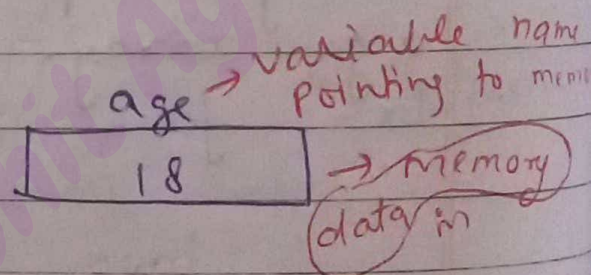 age → variable name
pointing to
18 → memory
data in